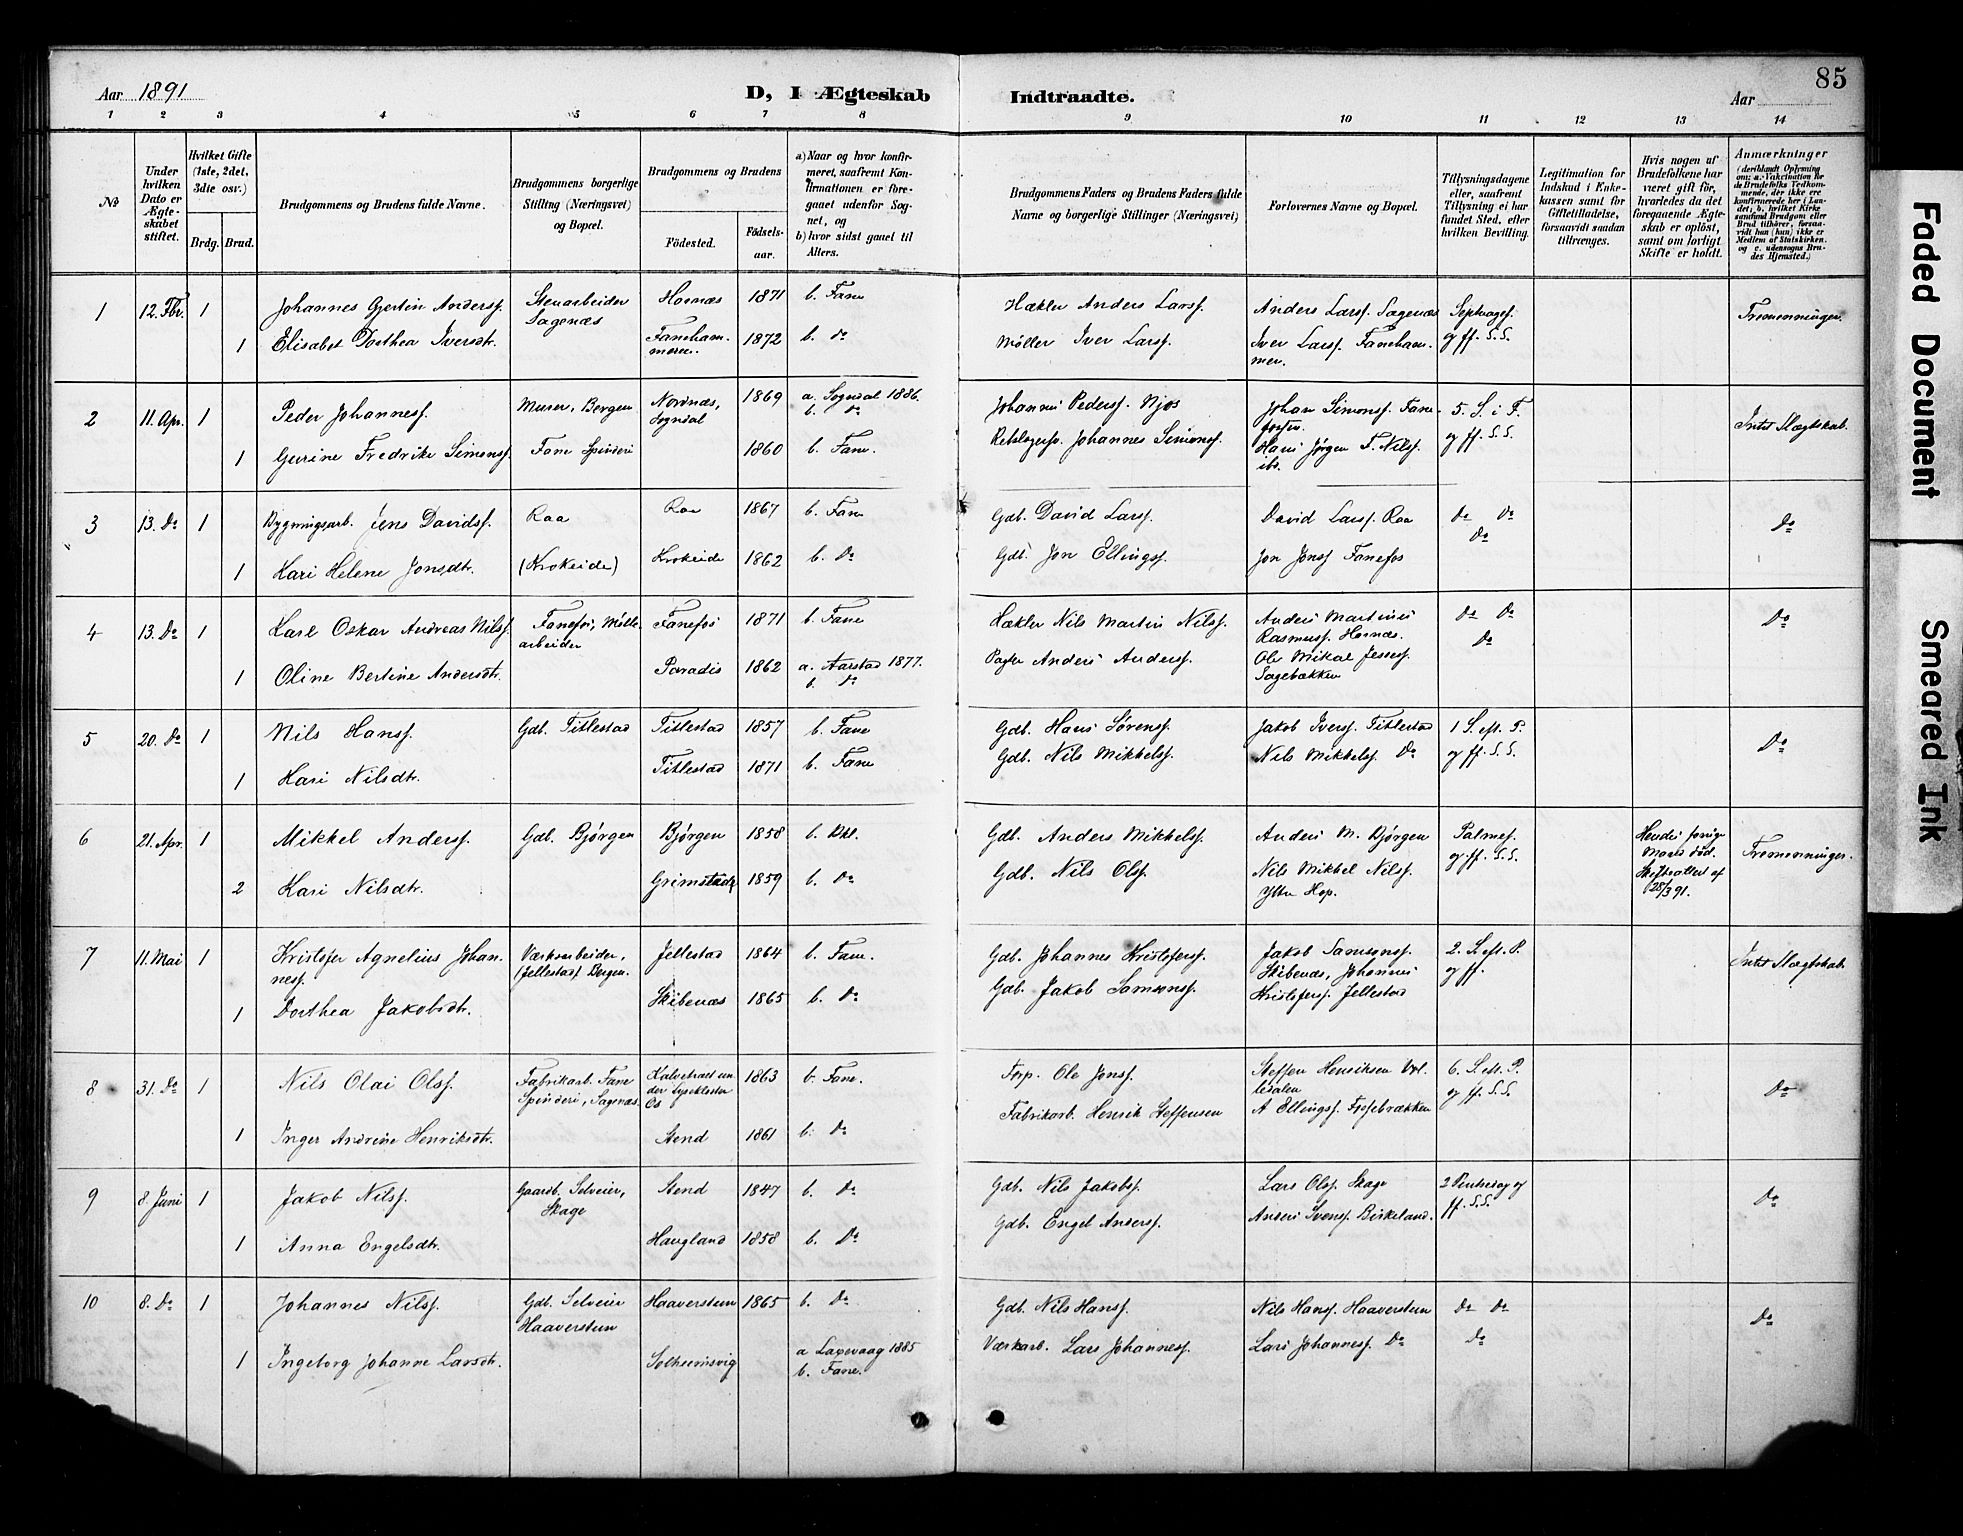 85
Aar 1891
D, I Ægteskab
Indtraadte.
Aar
1 2 3 4 5 6 7 8 9 10 11 12 13 14
No
Under hvilken Dato er Ægteskabet stiftet.
Hvilket Gifte (1ste, 2det, 3die osv.)
Brdg. Brud.
Brudgommens og Brudens fulde Navne.
Brudgommens borgerlige Stilling (Næringsvei) og Bopæl.
Brudgommens og Brudens
Fødested.
Fødselsaar.
a) Naar og hvor konfirmeret, saafremt Konfirmationen er foregaaet udenfor Sognet, og
b) hvor sidst gaaet til Alters.
Brudgommens Faders og Brudens Faders fulde Navne og borgerlige Stillinger (Næringsvei)
Forlovernes Navne og Bopæl.
Tillysningsdagene eller, saafremt Tillysning ei har fundet Sted, efter hvilken Bevilling.
Legitimation for Indskud i Enkekassen samt for Giftetilladelse, forsaavidt saadan tiltrænges.
Hvis nogen af Brudefolkene har været gift før, hvorledes da det foregaaende Ægteskab er opløst, samt om lovligt Skifte er holdt.
Anmærkninger
(deriblandt Oplysning om: a. Vakcination for de Brudefolks Vedkommende, der ikke ere konfirmerede her i Landet; b. hvilket Kirkesamfund Brudgom eller Brud tilhører, forsaavidt han (hun) ikke er Medlem af Statskirken. og c. udensogns Brudes Hjemsted.)
1 12. Fbr. 1 Johannes Gjertin Andersf. Stenarbeider Sagenæs Hornæs 1871 b. Fane Hækler Anders Larsf. Anders Larsf. Sagenæs Septvagef. og ff. S.S. Tremenninger.
1 Elisabet Dorthea Iversdtr. Fanehammeren. 1872 b. do Møller Iver Larsf. Iver Larsf. Fanehammer.
2 11. Apr. 1 Peder Johannesf. Murer, Bergen Nordnæs, Sogndal 1869 a. Sogndal 1886. b. do Johannes Pedersf. Njøs Johan Simonsf. Fanefossen. 5. S. i F. og ff. S.S. Intet Slægtskab.
1 Gurine Fredrike Simonsf. Fane Spinderi 1860 b. Fane. Johannes Simonsf. Hans Jørgen F. Nilsf. ibs.
3 13. Do 1 Bygningsarb. Jens Davidsf. Raa Raa 1867 b. Fane Gdb. David Larsf. David Larsf. Raa Do Do Do Do
1 Kari Helene Jonsdtr. (Krokeide) Krokeide 1862 b. Do Gdb. Jon Ellingsf. Jon Jonsf Fanefos
4 13. Do 1 Karl Oskar Andreas Nilsf. Fanefos, Møllearbeider Fanefos 1871 b. Fane Hækler Nils Martin Nilsf. Anders Martinus Rasmussf. Hornæs. Do Do Do Do
1 Oline Bertine Andersdtr. Paradis 1862 a. Aarstad 1877. b. do Anders Andersf. Ole Mikal Jessesf. Sagebækken
5 20. Do 1 Nils Hansf. Gdb. Titlestad Titlestad 1857 b. Fane Gdb. Hans Sørensf. Jakob Iversf. Titlestad 1 S. eft. P. og ff. S.S. Do
1 Kari Nilsdtr. Titlestad 1871 b. Fane Gdb. Nils Mikkelsf. Nils Mikkelsf. Do
6 21. Apr. 1 Mikkel Andersf. Gdb. Bjørgen Bjørgen 1858 b. Bkl. Gdb. Anders Mikkelsf. Anders M. Bjørgen Palmes. og ff. S.S. Hendes forrige Mand død. Skifteattest af 28/3 91. Tremenninger.
2 Kari Nilsdtr. Grimstad 1859 b. Do Gdb. Nils Olsf. Nils Mikkel Nilsf. Ytre Hop.
7 11. Mai 1 Kristofer Agnelius Johannesf. Værksarbeider, (Jellestad) Bergen. Jellestad 1864 b. Fane. Gdb. Johannes Kristofersf. Jakob Samsonsf. Skibenæs, Johannes Kristofersf. Jellestad 2. S. eft. P. og ff. Intet Slægtskab.
1 Dorthea Jakobsdtr. Skibenæs 1865 b. Do Gdb. Jakob Samsonsf.
8 31. Do 1 Nils Olai Olsf. Fabrikarb. Fane Spinderi, Sagenæs. Kalvetræet under Lysekloster Os 1863 b. Fane. Forp. Ole Jonsf. Steffen Henriksen 6. S. eft. P. og ff. S.S. Do
1 Inger Andrine Henriksdtr. Stend 1861 b. Do Fabrikarb. Henrik Steffensen A Ellingsf. Fossebrækken
9 8. Juni 1 Jakob Nilsf. Gaardb. Selveier, Skage Stend 1847 b. Do Gdb. Nils Jakobsf. Lars Olsf. Skage 2 Pintsedag og ff. S.S. Do
1 Anna Engelsdtr. Haugland 1858 b. Do Gdb. Engel Andersf. Anders Svensf. Birkeland.
10 8. Do 1 Johannes Nilsf. Gdb. Selveier Haaverstein Haaverstein 1865 b. Do Gdb. Nils Hansf. Nils Hansf. Haaverstein Do Do Do Do
1 Ingeborg Johanne Larsdtr. Solheimsvig a Laxevaag 1885 b. Fane. Værkarb. Lars Johannesf. Lars Johannesf. Do
Faded Document
Smeared Ink